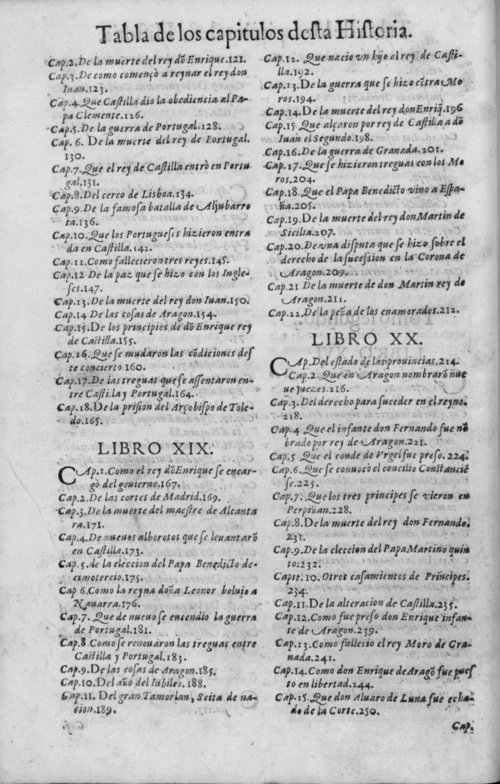 Tabla de los capitulos desta Historia.
Cap.2. De la muerte del rey dō Enrique.121.
Cap.3. De como començò a reynar el rey don
Iuan.123.
Cap.4. Que Castilla dio la obediencia al Pa-
pa Clemente.126.
Cap.5. De la guerra de Portugal.128.
Cap. 6. De la muerte del rey de Portugal.
130.
Cap.7. Que el rey de Castilla entrò en Portu
gal.131.
Cap.8. Del cerco de Lisboa.134.
Cap.9. De la famosa batalla de Aljubarro
ta.136.
Cap.10. Que los Portugueses hizieron entra
da en Castilla.142.
Cap.11. Como fallecierō tres reyes.145.
Cap.12 De la paz que se hizo con los Ingle-
ses.147.
Cap.13. De la muerte del rey don Iuan.150.
Cap.14 De las cosas de Aragon.154.
Cap.15. De los principios de dō Enrique rey
de Castilla.155.
Cap.16. Que se mudaron las cōdiciones des
te concierto.160.
Cap.17. De las treguas que se assentaron en-
tre Castilla y Portugal.164.
Cap.18. De la prision del Arçobispo de Tole-
do.165.
LIBRO XIX.
CAp.1. Como el rey dō Enrique se encar-
gò del govierno.167.
Cap.2. De las cortes de Madrid.169.
Cap.3. De la muerte del maestre de Alcanta
ra.171.
Cap.4. De nuevos alborotos que se levantarō
en Castilla.173.
Cap.5. de la eleccion del Papa Benedicto de-
cimotercio.175.
Cap 6. Como la reyna doña Leonor boluio a
Nauarra.176.
Cap.7. Que de nueuo se encendio la guerra
de Portugal.181.
Cap.8 Como se renouaron las treguas entre
Castilla y Portugal.183.
Cap.9. De las cosas de Aragon.185.
Cap.10. Del año del Iubileo.188.
Cap.11. Del gran Tamorlan, Scita de na-
cion.189.
Cap.12. Que nacio vn hijo al rey de Casti-
lla.192.
Cap.13. De la guerra que se hizo cōtra Mo
ros.194.
Cap.14. De la muerte del rey don Enriq̄.196
Cap.15 Que alçaron por rey de Castilla a dō
Iuan el Segundo.198.
Cap.16. De la guerra de Granada.201.
Cap.17. Que se hizieron treguas con los Mo
ros.204.
Cap.18. Que el Papa Benedicto vino a Espa
ña.205.
Cap.19. De la muerte del rey don Martin de
Sicilia.207.
Cap.20. De vna disputa que se hizo sobre el
derecho de la sucession en la Corona de
Aragon.209.
Cap.21 De la muerte de don Martin rey de
Aragon.211.
Cap.22. De la peña de los enamorados.212.
LIBRO XX.
CAp. Del estado de las prouincias.214.
Cap.2. Que en Aragon nombrarō nue
ue juezes.216.
Cap.3. Del derecho para suceder en el reyno.
218.
Cap.4 Que el infante don Fernando fue nō
brado por rey de Aragon.221.
Cap.5 Que el conde de Vrgel fue preso.224.
Cap.6. Que se conuocò el concilio Constancie
se.225.
Cap.7. Que los tres principes se vieron en
Perpiñan.228.
Cap.8. De la muerte del rey don Fernando.
231.
Cap.9. De la eleccion del Papa Martino quin
to.232.
Capit.10. Otros casamientos de Principes.
234.
Cap.11. De la alteracion de Castilla.235.
Cap.12. Como fue preso don Enrique infan-
te de Aragon.239.
Cap.13. Como fallecio el rey Moro de Gra-
nada.241.
Cap.14. Como don Enrique de Aragō fue pues
to en libertad.244.
Cap.15. Que don Aluaro de Luna fue echa-
do de la Corte.250.
Cap.